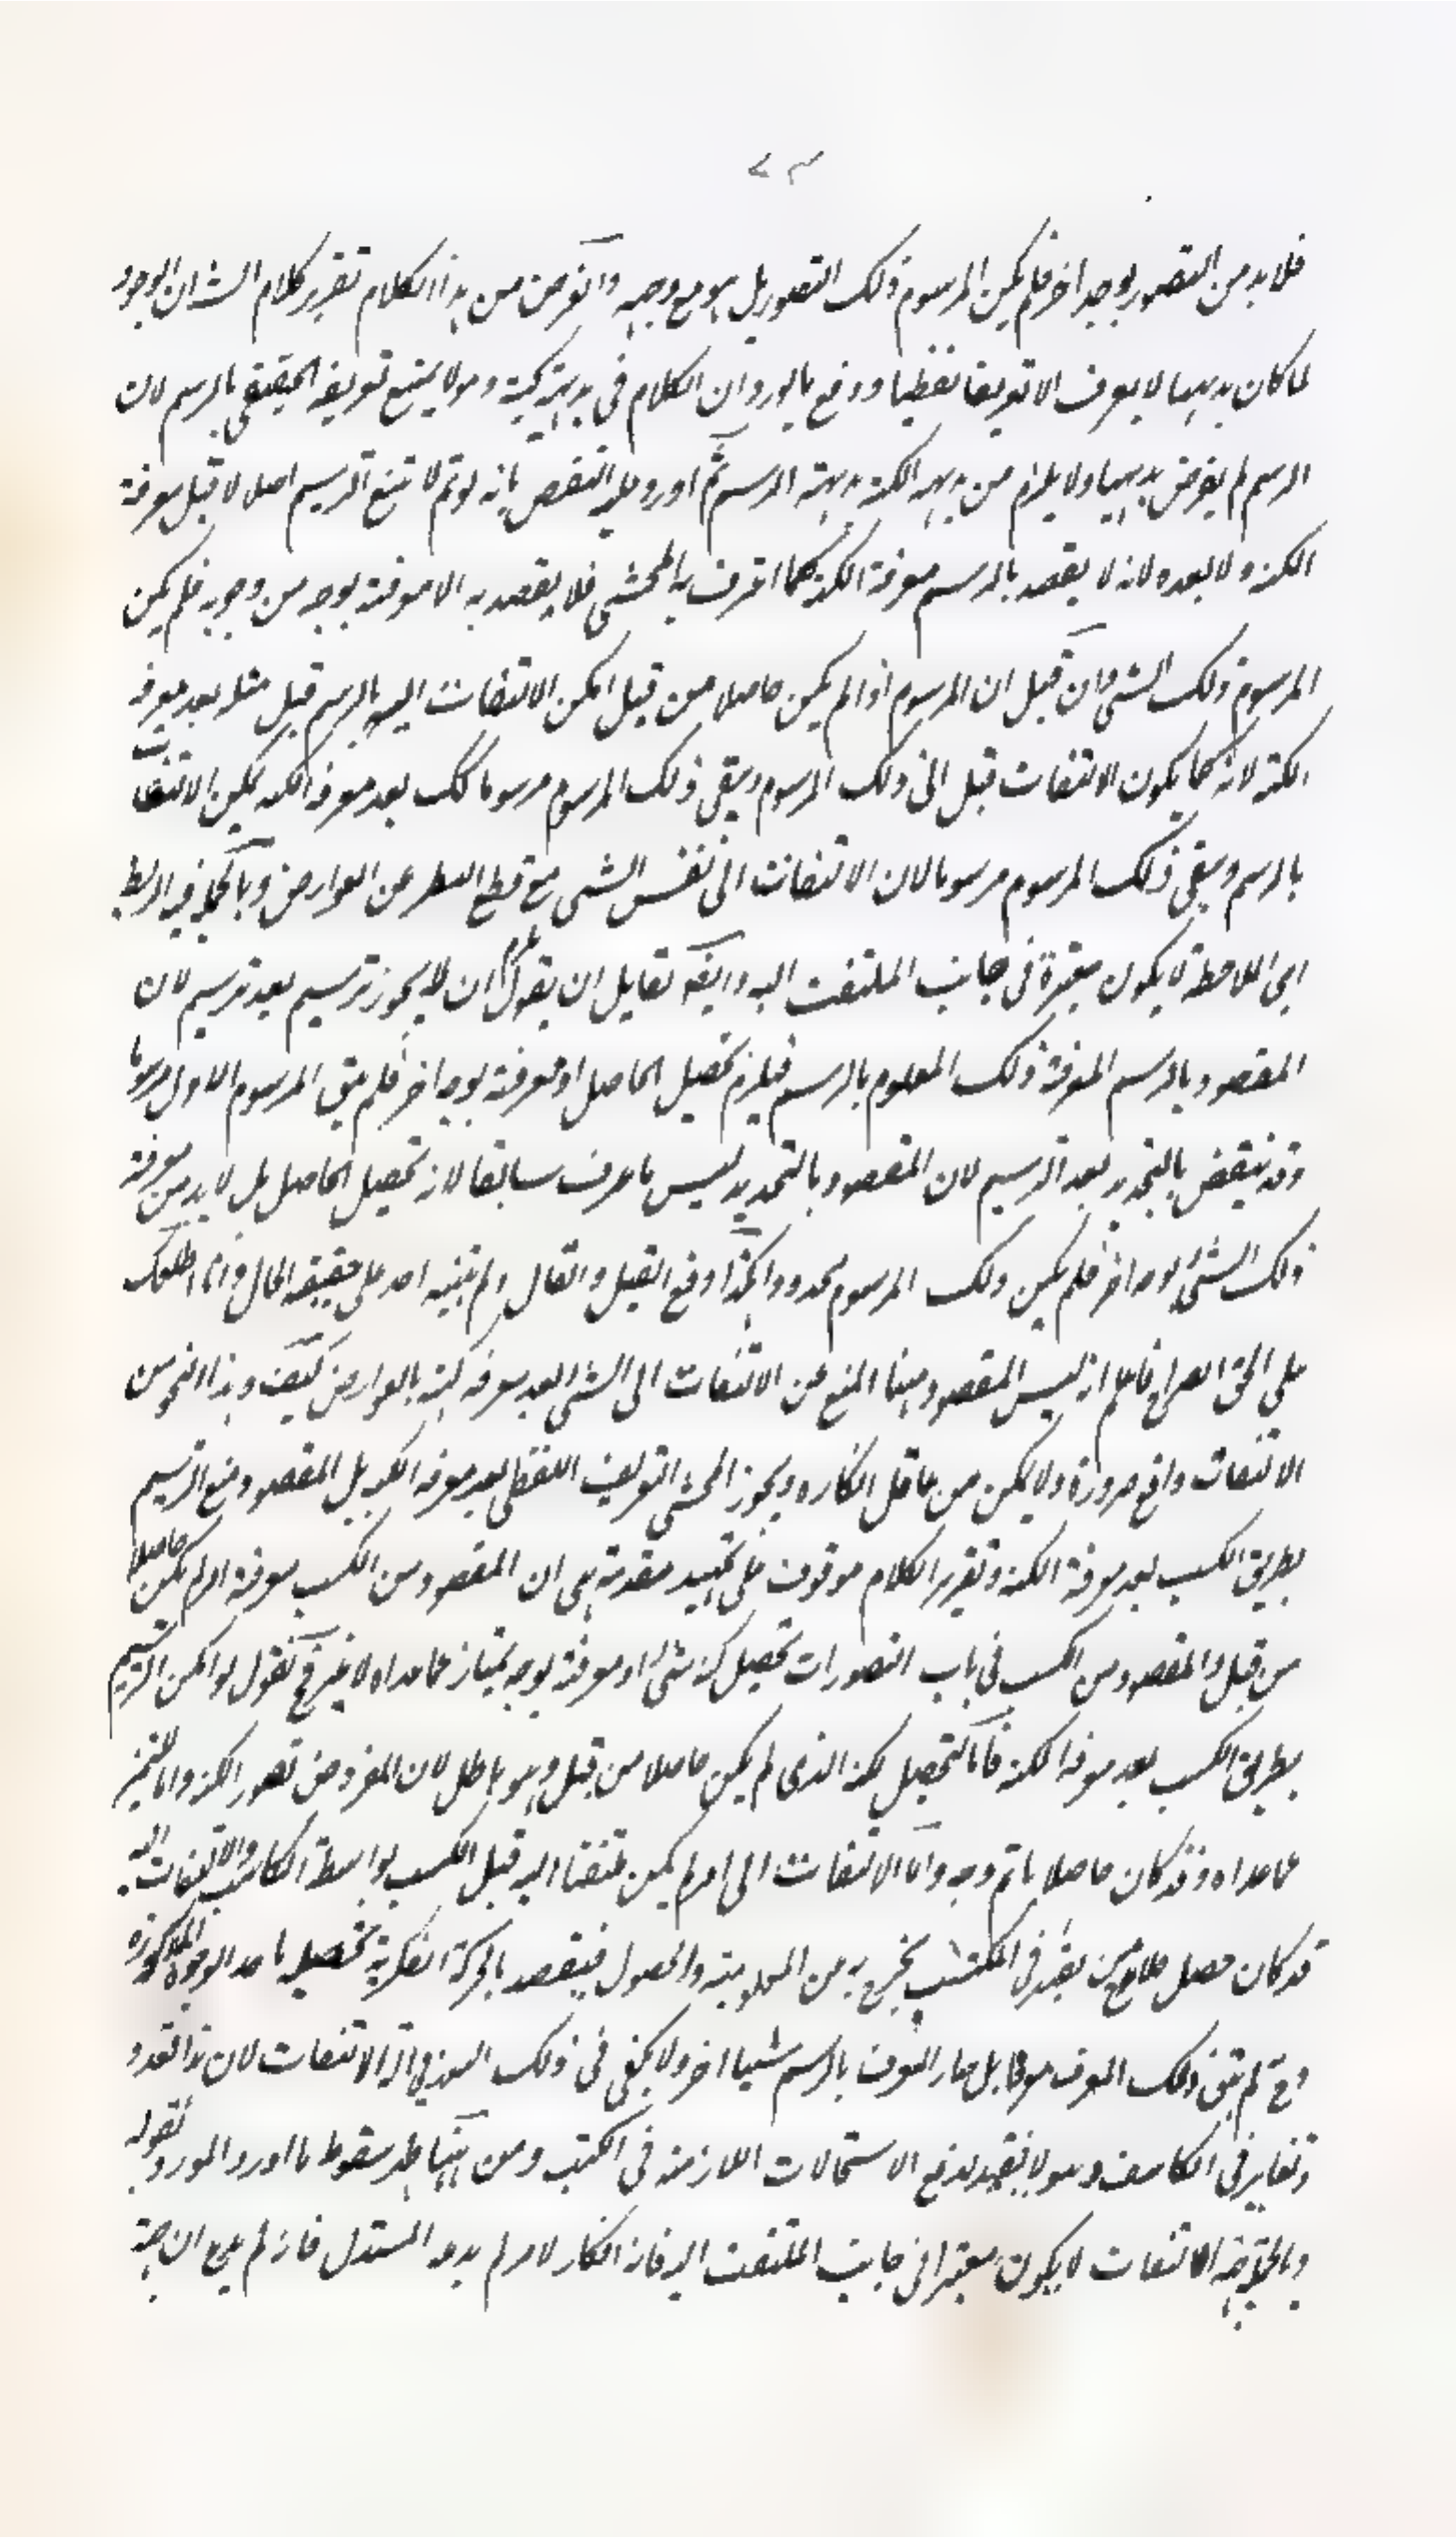 ٧٣
فلا بد من التصور بوجه اخر فلم يكن المرسوم ذلك التصور بل هو مع وجهه والغرض من هذا الكلام تقرير كلام الش ان الوجود
لما كان بديهيا لا يعرف الا تعريفا لفظيا ودفع ما يورد ان الكلام في بديهة كنهه وهو لا يمنع تعريفه الحقيقي بالرسم لان
الرسم لم يفرض بديهيا ولا يلزم من بديهة الكنه بديهة الرسم ثم اورد عليه النقض بانه لو تم لامتنع الترسيم اصلا لا قبل معرفة
الكنه ولا بعده لانه لا يقصد بالرسم معرفة الكنه كما اعترف به المحشي فلا يقصد به الا معرفته بوجه من وجوهه فلم يكن
المرسوم ذلك الشي فان قيل ان المرسوم اذا لم يكن حاصلا من قبل امكن الالتفات اليه بالرسم قيل مثله بعد معرفة
الكنه لانه كما يكون الالتفات قبل الى ذلك المرسوم ويبقى ذلك المرسوم مرسوما كك بعد معرفة الكنه يمكن الالتفات
بالرسم ويبقى ذلك المرسوم مرسوما لان الالتفات الى نفس الشي مع قطع النظر عن العوارض وبالجملة قيد الربط
اي الملاحظة لا يكون معتبرة في جانب الملتفت اليه وايضا لقايل ان يقول يلزم ان لا يجوز ترسيم بعد ترسيم لان
المقصود بالرسم المعرفة ذلك المعلوم بالرسم فيلزم تحصيل الحاصل او معرفته بوجه اخر فلم يبق المرسوم الاول مرسوما
وقد ينقض بالتحديد بعد الترسيم لان المقصود بالتحديد ليس ما عرف سابقا لانه تحصيل الحاصل بل لا بد من معرفة
ذلك الشي بوجه اخر فلم يكن ذلك المرسوم محدودا هكذا وقع القيل والقال ولم يتنبه احد على حقيقة الحال وانا اطلعك
على الحق الصراح فاعلم انه ليس المقصود ههنا المنع عن الالتفات الى الشي بعد معرفة كنهه بالعوارض كيف وهذا النحو من
الالتفات واقع ضرورة ولا يمكن من عاقل انكاره ويجوز المحشي التعريف اللفظي بعد معرفة الكنه بل المقصود منع الترسيم
بطريق الكسب بعد معرفة الكنه وتقرير الكلام موقوف على تمهيد مقدمة هي ان المقصود من الكسب معرفة امر لم يكن حاصلا
من قبل والمقصود من الكسب في باب التصورات تحصيل كنه شي او معرفته بوجه يمتاز عما عداه لا غير فح نقول لو امكن الترسيم
بطريق الكسب بعد معرفة الكنه فاما لتحصيل كنه الذي لم يكن حاصلا من قبل وهو باطل لان المفروض تصور الكنه واما للتميز
عما عداه وقد كان حاصلا باتم وجه واما الالتفات الى امر لم يكن ملتفتا اليه قبل الكسب بواسطة الكاسب والالتفات اليه
قد كان حصل فلا بد من تغير في المكتسب يخرج به من المعلومية والحصول فيقصد بالحركة الفكرية تحصيله باحد الوجوه المذكورة
وح لم يبق ذلك المعرف معرفا بل صار المعرف بالرسم شيئا اخر ولا يكفي في ذلك التغير الالتفات لان هذا تعدد
وتغاير في الكاسب وهو لا يفيد لدفع الاستحالات اللازمة في الكتب ومن ههنا ظهر سقوط ما اورد المورد بقوله
وبالجملة جهة الالتفات لا يكون معتبرا في جانب الملتفت اليه فانه انكار لامر لم يدعه المستدل فانه لم يدع ان جهة